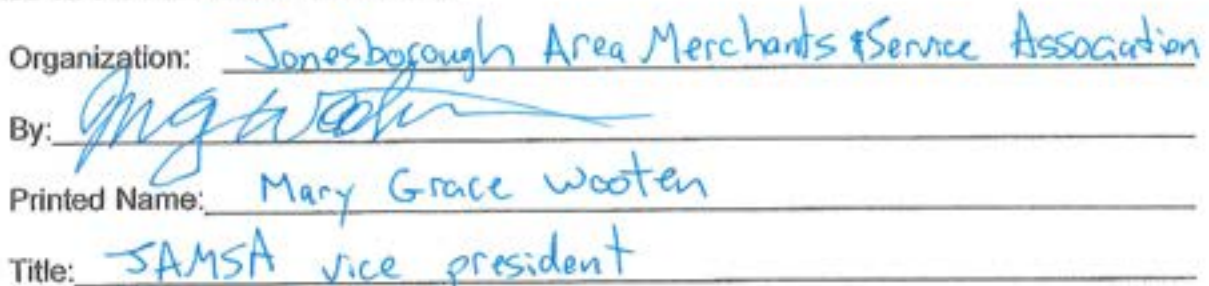 Organization: Jonesborough Area Merchants & Service Association
By: MG Wooten
Printed Name: Mary Grace Wooten
Title: JAMSA vice president